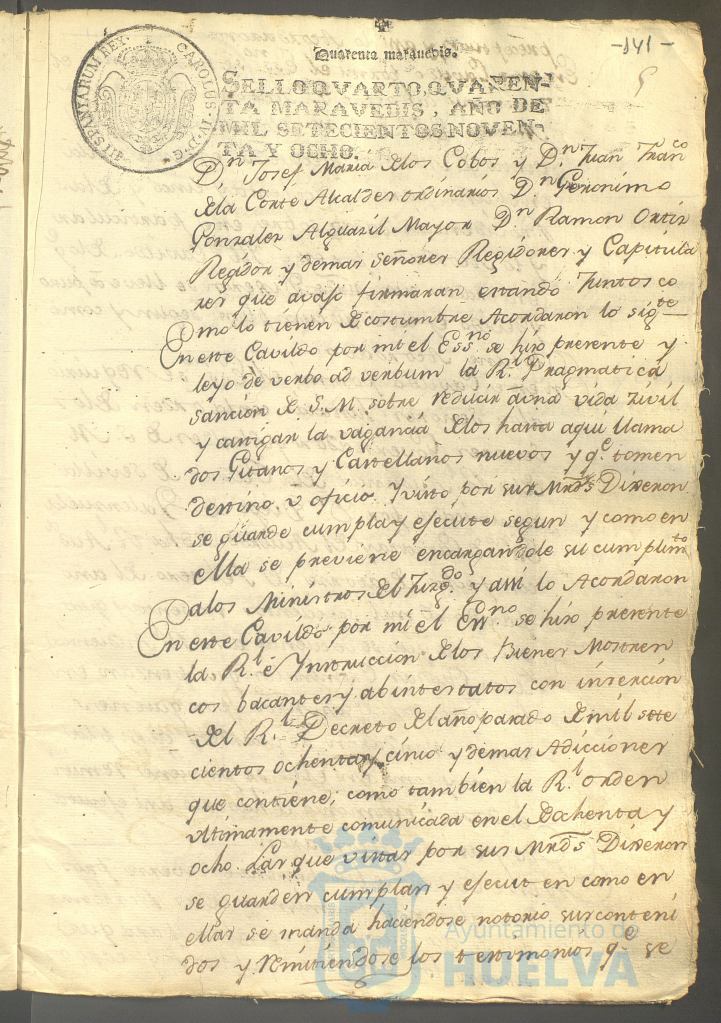 -141-
Quarenta maravedis.
SELLO QVARTO, QVAREN-
TA MARAVEDIS, AÑO DE
MIL SETECIENTOS NOVEN-
TA Y OCHO.
CAROLUS IV D G HISPANIARUM REX
Dn Josef Maria de los Cobos y Dn Juan Franco
de la Corte Alcaldes ordinarios Dn Geronimo
Gonzales Alguazil Mayor Dn Ramon Ortiz
Regidor y demas señores Regidores y Capitula
res que avajo firmaran estando Juntos co
mo lo tienen de costumbre Acordaron lo sigte
En este Cavildo por mi el Essno se hizo presente y
leyo de verbo ad verbum la Rl Pragmatica
sancion de S. M. sobre reducir a una vida zivil
y castigar la vagancia de los hasta aqui llama
dos Gitanos y Castellanos nuevos y qe tomen
destino u oficio. Y visto por sus Mrds Dixeron
se guarde cumpla y ejecute segun y como en
ella se previene encargandole su cumplimto
a los Ministros del Juzgdo y assi lo Acordaron
En este Cavildo por mi el Essno se hizo presente
la Rl Instruccion de los Bienes Mostren
cos bacantes y abintestatos con insercion
del Rl Decreto del año pasado de mil sete
cientos ochenta y cinco y demas Adicciones
que contiene; como tambien la Rl orden
ultimamente comunicada en el de ochenta y
ocho. Las que vistas por sus Mrds Dixeron
se guarden cumplan y ejecuten como en
ellas se manda haciendose notorio sus conteni
dos y remitiendose los testimonios qe se
Ayuntamiento de
HUELVA